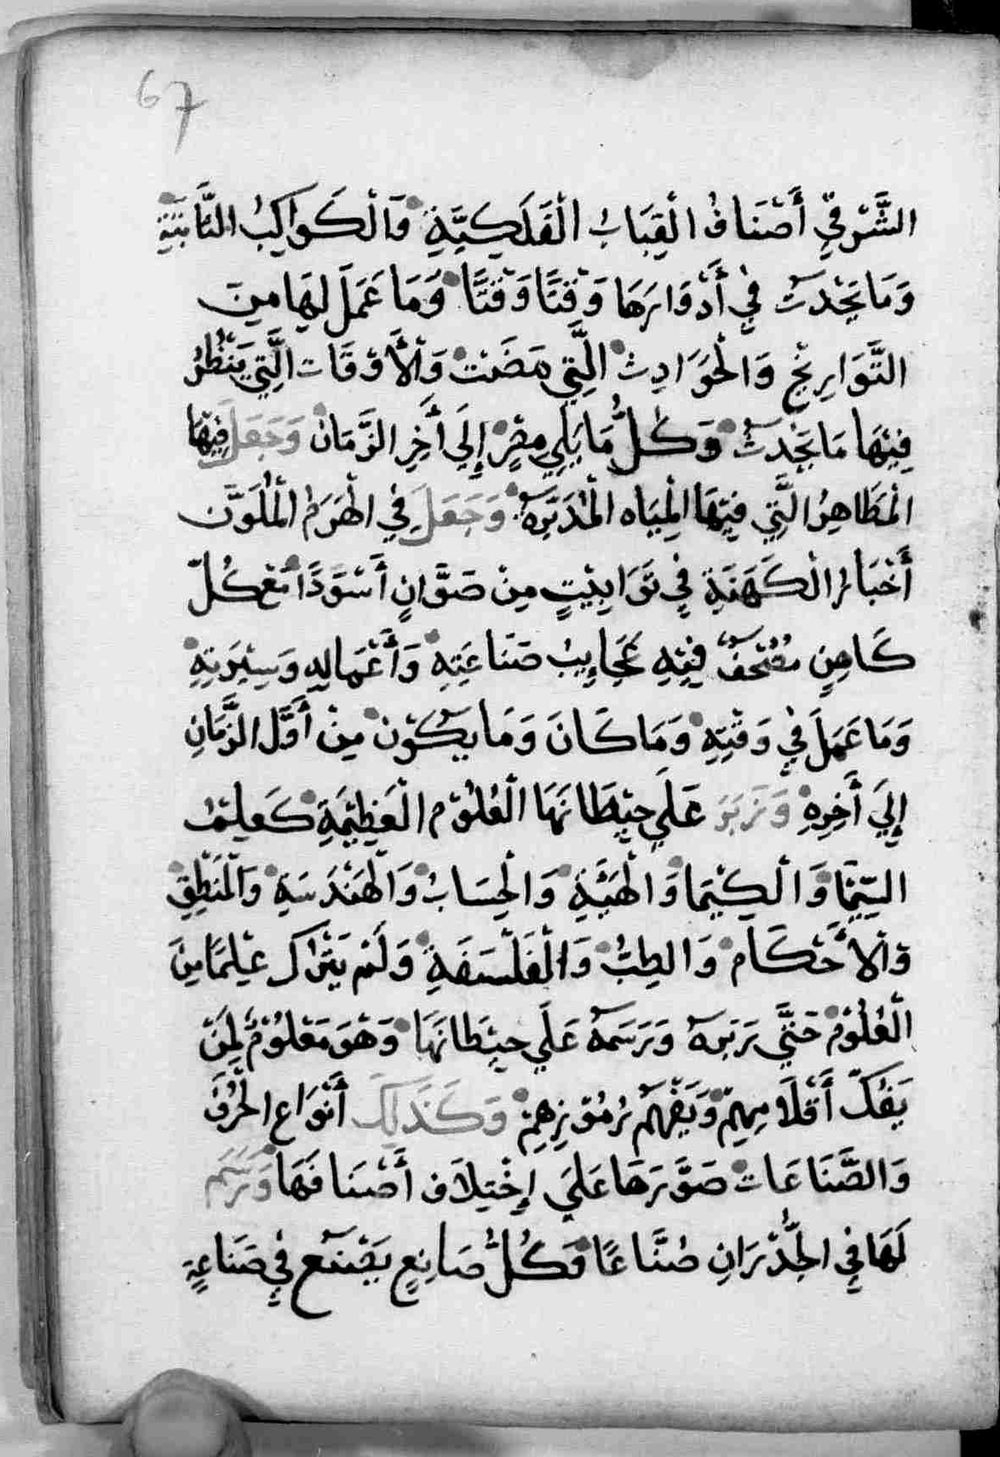 67
الشَّرْقِيِّ أَصْنَافُ الْقِبَابُ الْفَلَكِيَّةِ وَالْكَوَاكِبُ الثَّابِتَةِ
وَمَا يَحْدثُ فِي أَدْوَارِهَا وَقْتًا وَقْتًا وَمَا عَمَلَ لِهَا مِنَ
التَّوَارِيْخِ وَالْحَوَادِثْ الَّتِي مَضَتْ وَالْأَوْقَات الَّتِي يَنْظُرُ
فِيْهَا مَا يَحْدثُ وَكُلُّ مَا يَلِي مِصْرٍ إِلَي أَخِرِ الزَّمَانْ وَجَعَلَ فِيْهَا
الْمَطَاهِرُ الَّتِي فِيْهَا الْمِيَاه الْمُدَبَّرَه وَجَعَلَ فِي الْهَرَمُ الْمُلَوَّن
أَخْبَارُ الْكَهَنَةِ فِي تَوَابِيْتٍ مِنْ صَوَّانٍ أَسْوَدًا مَعْ كُلّ
كَاهِنٍ مُصْحَفٌ فِيْهِ عَجَايِبُ صَنَاعَتِهِ وَأَعْمَالِهِ وَسِيْرَتِهِ
وَمَا عَمَلَ فِي وَقْتِهِ وَمَا كَانَ وَمَا يَكُوْن مِنْ أَوَّل الزَّمَانِ
إِلَيَ أَخِرِهِ وَزَبَرَ عَلَي حِيْطَانِهَا الْعُلُوْم الْعَظِيْمَةِ كَعِلْمُ
السِّيْمِيَا وَالْكِيْمِيَا وَالْهَيْئَةِ وَالْحِسَابْ وَالْهَنْدَسَةِ وَالْمَنْطِقِ
وَالْأَحْكَامْ وَالطِبُّ وَالْفَلْسَفَةِ وَلَمْ يَتْرَكْ عِلْمًا مِنَ
الْعُلُوْمْ حَتَّي زَبَرَهُ وَرَسَمَهُ عَلَي حِيْطَانِهَا وَهْوَ مَعْلُوْمٌ لِمَنْ
يَفُكّ أَقْلَامِهِمْ وَيَفْهَمْ رُمُوْزِهِمْ وَكَذَلِكَ أَنْوَاع الْحُرُفْ
وَالصَّنَاعَاتْ صَوَّرَهَا عَلَي إِخْتِلَاف أَصْنَافَهَا وَرَسَمَ
لَهَا فِي الْجُدْرَانِ صُنَّاعًا وَكُلُّ صَانِعٍ يَصْنَع فِي صَنَاعَةٍ